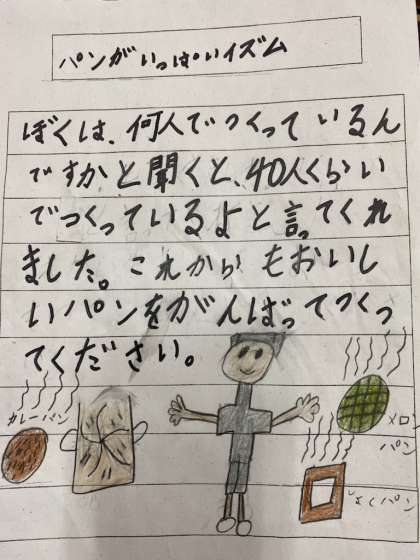 パンがいっぱいイズム
ぼくは、何人でつくっているん
ですかと聞くと、40人くらい
でつくっているよと言ってくれ
ました。これからもおいし
いパンをがんばってつくっ
てください。
カレーパン
メロン
パン
しょくパン